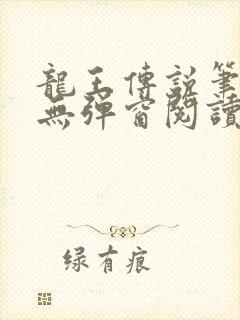 龍王傳說筆
無彈窗閱讀
绿有痕